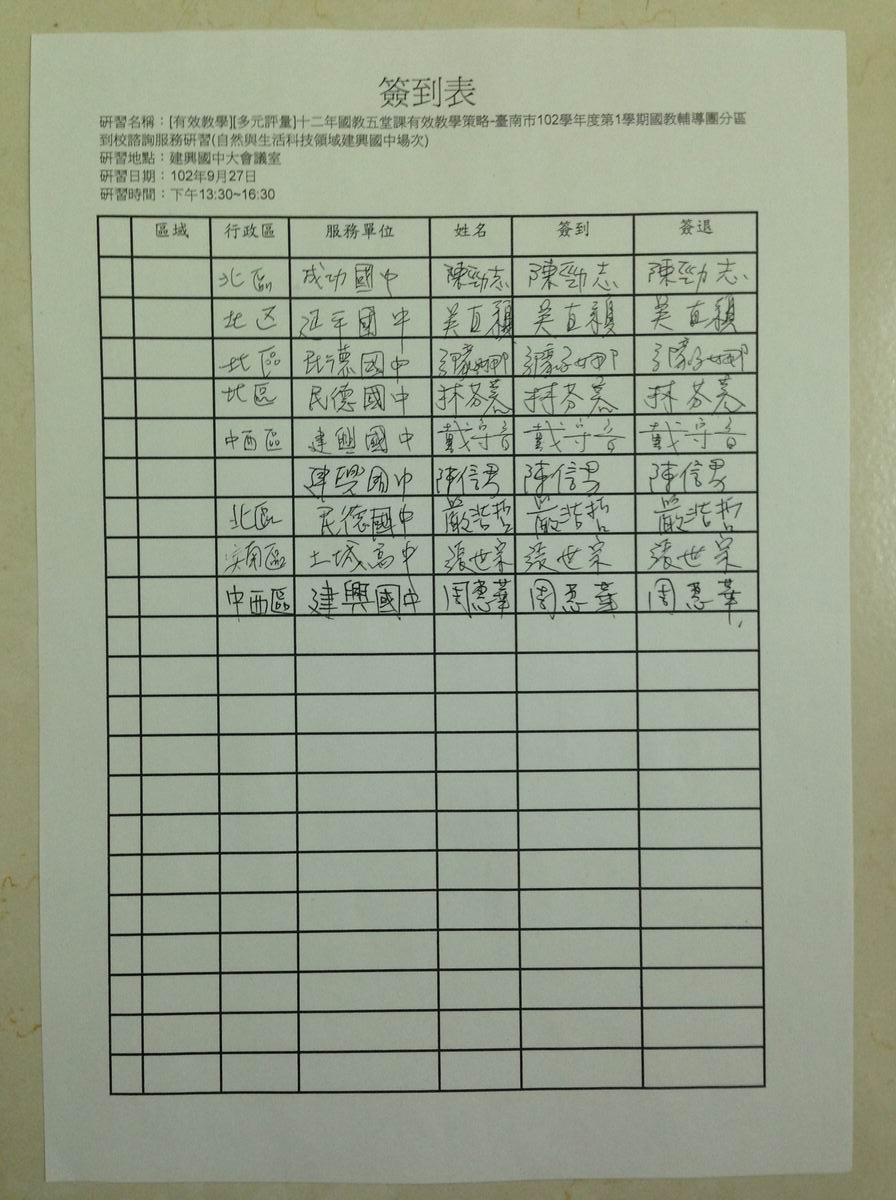 簽到表
研習名稱：[有效教學][多元評量]十二年國教五堂課有效教學策略-臺南市102學年度第1學期國教輔導團分區
到校諮詢服務研習(自然與生活科技領域建興國中場次)
研習地點：建興國中大會議室
研習日期：102年9月27日
研習時間：下午13:30~16:30
區域 行政區 服務單位 姓名 簽到 簽退
北區 成功國中 陳勁志 陳勁志 陳勁志
北区 延平國中 吳直穎 吳直穎 吳直穎
北區 民德國中
北區 民德國中 林芬蓁 林芬蓁 林芬蓁
中西區 建興國中 戴守音 戴守音 戴守音
建興國中 陳信男 陳信男 陳信男
北區 民德國中 嚴浩哲 嚴浩哲 嚴浩哲
安南區 土城高中 張世宗 張世宗 張世宗
中西區 建興國中 周惠華 周惠華 周惠華